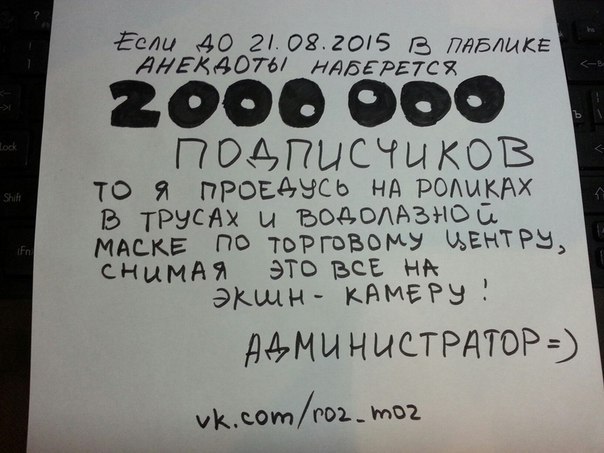 Если до 21.08.2015 в паблике
анекдоты наберется
2000 000
подписчиков
то я проедусь на роликах
в трусах и водолазной
маске по торговому центру,
снимая это все на
экшн-камеру!
Администратор=)
vk.com/roz_moz
Lock
Shift
Fn